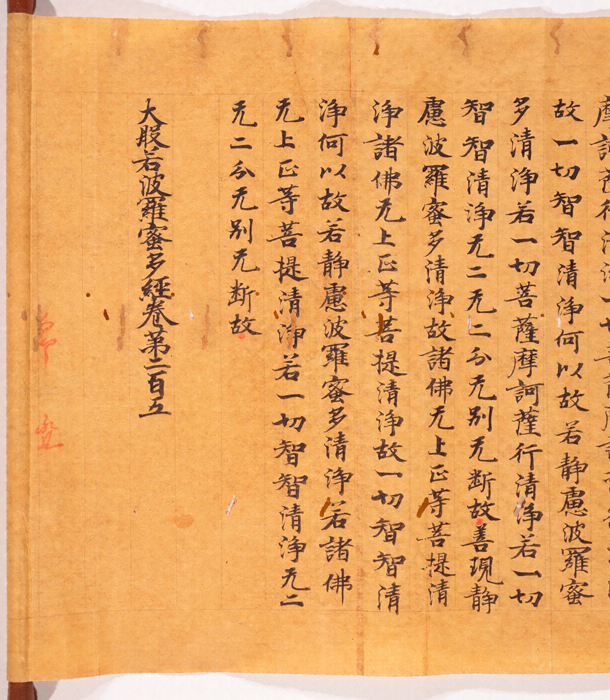 故一切智智清淨何以故若静慮波羅蜜
多清淨若一切菩薩摩訶薩行清淨若一切
智智清淨无二无二分无別无断故善現静
慮波羅蜜多清淨故諸佛无上正等菩提清
淨諸佛无上正等菩提清淨故一切智智清
淨何以故若静慮波羅蜜多清淨若諸佛
无上正等菩提清淨若一切智智清淨无二
无二分无別无断故
大般若波羅蜜多經卷第二百五